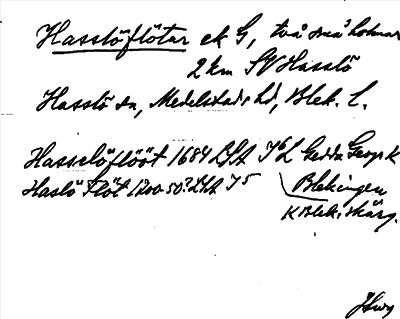 Hasslöflötar ek G, två små holmar
2 km SV Hasslö
Hasslö sn, Medelstads hd, Blek. l.
Hasselöflööt 1684 LSA Gedda Geogr K
Haslö Flöt LSA Blekingen
K Blek. skärg.